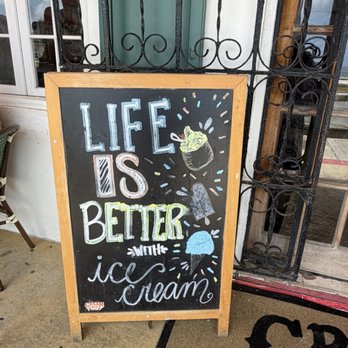 LIFE
IS
BETTER
WITH
ice
cream